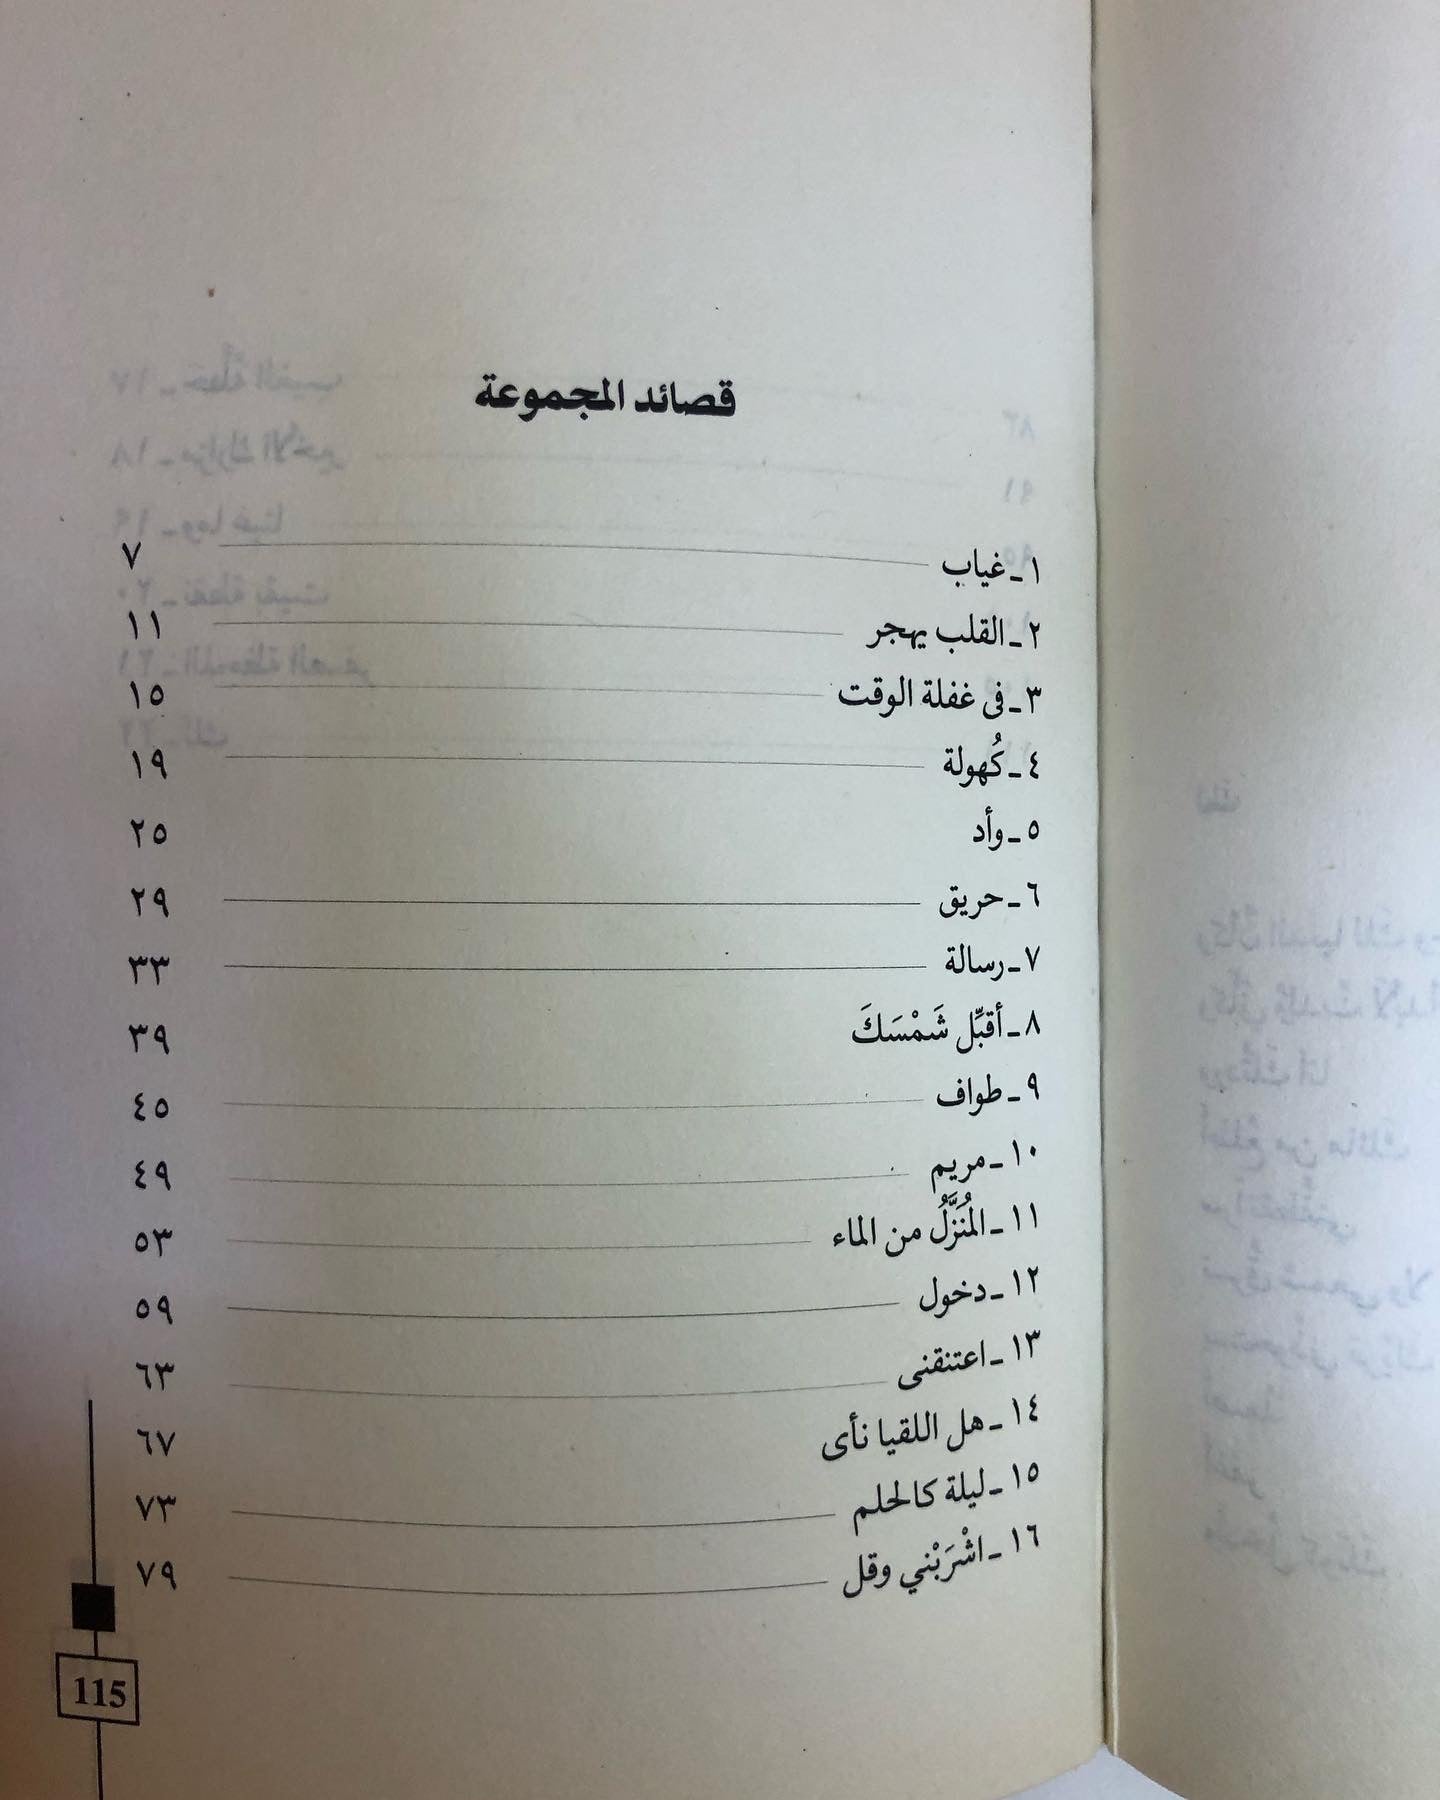 قصائد المجموعة
١ ـ غياب ٧
٢ ـ القلب يهجر ١١
٣ ـ فى غفلة الوقت ١٥
٤ ـ كُهولة ١٩
٥ ـ وأد ٢٥
٦ ـ حريق ٢٩
٧ ـ رسالة ٣٣
٨ ـ أقبِّل شَمْسَكَ ٣٩
٩ ـ طواف ٤٥
١٠ ـ مريم ٤٩
١١ ـ المُنَزَّلُ من الماء ٥٣
١٢ ـ دخول ٥٩
١٣ ـ اعتنقنى ٦٣
١٤ ـ هل اللقيا نأى ٦٧
١٥ ـ ليلة كالحلم ٧٣
١٦ ـ اشْرَبْني وقل ٧٩
115